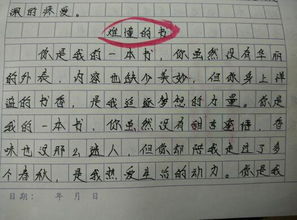 溉的珠爱。
难懂的书
你是我的一本书，你虽然没有华丽
的外表，内容也缺个美妙，但你身上洋
溢的书香，是我延延梦想的力量。你是
我的一本书，你虽然没有甜言蜜语，香
味也没那么迷人，但你却陪我走过了多
个春秋，是我热爱生活的动力。你是我
日期： 年 月 日